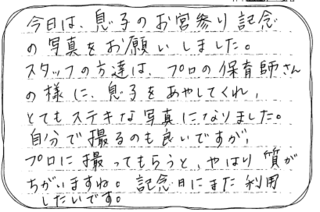 今日は、息子のお宮参り記念
の写真をお願いしました。
スタッフの方達は、プロの保育師さん
の様に、息子をあやしてくれ、
とてもステキな写真になりました。
自分で撮るのも良いですが、
プロに撮ってもらうと、やはり質が
ちがいますね。記念日にまた利用
したいです。